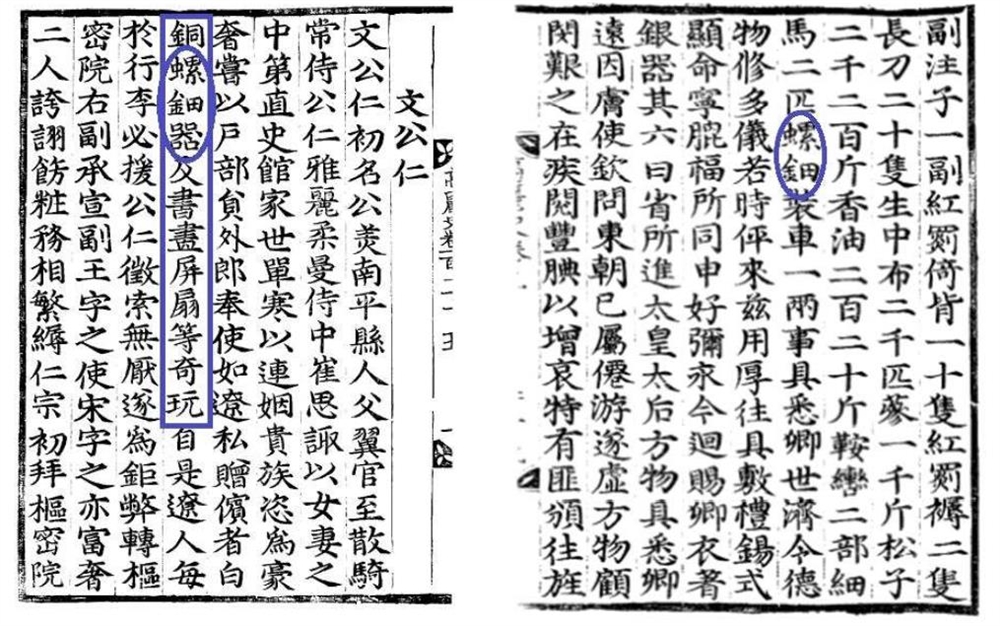 副注子一副紅罽倚背一十隻紅罽褥二隻
長刀二十隻生中布二千匹蔘一千斤松子
二千二百斤香油二百二十斤鞍轡二部細
馬二匹螺鈿裝車一兩事具悉卿世濟令德
物修多儀若時伻來茲用厚往具敷禮錫式
顯命寧膍福所同申好彌永今迴賜卿衣著
銀器其六曰省所進太皇太后方物具悉卿
遠因膚使欽問東朝已屬僊游遂虛方物顧
閔艱之在疚閱豐腆以增哀特有匪頒往旌
文公仁
文公仁初名公美南平縣人父翼官至散騎
常侍公仁雅麗柔曼侍中崔思諏以女妻之
中第直史館家世單寒以連姻貴族恣爲豪
奢嘗以戶部員外郎奉使如遼私贈儐者白
銅螺鈿器及書畫屏扇等奇玩自是遼人每
於行李必援公仁徵索無厭遂爲鉅弊轉樞
密院右副承宣副王字之使宋字之亦富奢
二人誇詡飭粧務相繁縟仁宗初拜樞密院